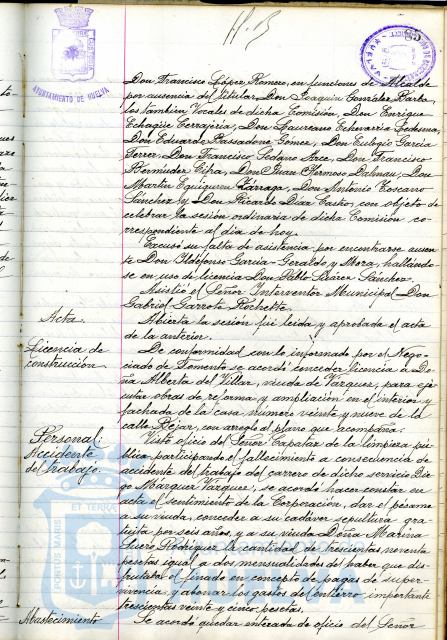 AYUNTAMIENTO DE HUELVA
Don Francisco López Romero, en funciones de Alcalde
por ausencia del titular Don Joaquín González Barba
los también Vocales de dicha Comisión, Don Enrique
Echagüe Cerrajería, Don Laureano Echevarría Ledesma,
Don Eduardo Bassadone Gómez, Don Eulogio García
Ferrer, Don Francisco Sedano Arce, Don Francisco
Bermúdez Don Juan Hermoso Dalmau, Don
Martín Don Antonio Toscano
Sánchez y Don Ricardo Díaz Castro, con objeto de
celebrar la sesión ordinaria de dicha Comisión co-
rrespondiente al día de hoy.
Excusó su falta de asistencia por encontrarse ausen
te Don Ildefonso García-Geraldo y Mora, hallándo-
se en uso de licencia Don Pablo Suárez Sánchez.
Asistió el Señor Interventor Municipal Don
Gabriel Garrote
Acta.
Abierta la sesión fué leída y aprobada el acta
de la anterior.
Licencia de
construcción
De conformidad con lo informado por el Nego-
ciado de Fomento se acordó conceder licencia a Do-
ña Alberta del Villar, viuda de Vázquez, para eje-
cutar obras de reforma y ampliación en el interior y
fachada de la casa número veinte y nueve de la
calle Béjar, con arreglo al plano que acompaña.
Personal:
Accidente
del trabajo.
Visto oficio del Señor Capataz de la limpieza pú-
blica participando el fallecimiento a consecuencia de
accidente del trabajo del carrero de dicho servicio Die-
go Márquez Vázquez; se acordó hacer constar en
acta el sentimiento de la Corporación, dar el pésame
a su viuda, conceder a su cadáver sepultura gra-
tuita por seis años y a su viuda Doña Marina
Suero Rodríguez la cantidad de trescientas noventa
pesetas igual a dos mensualidades del haber que dis-
frutaba el finado en concepto de pagas de super-
vivencia, y abonar los gastos del entierro importante
trescientas veinte y cinco pesetas.
Abastecimiento
Se acordó quedar enterada de oficio del Señor
PORTUS MARIS
ET TERRAE